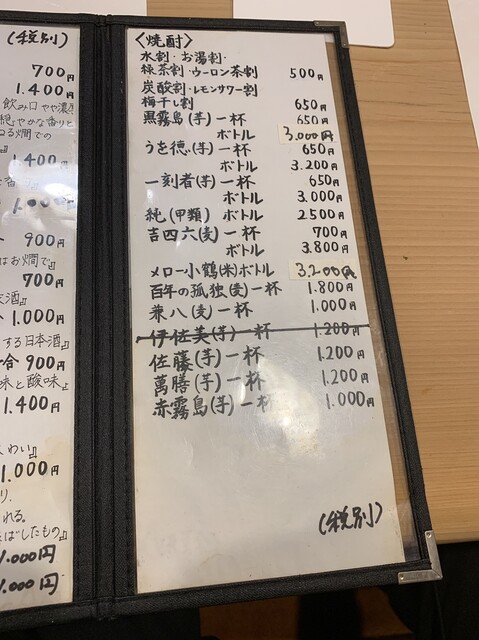 (税別)
700円
1.400円
飲み口 やや濃き
やかな香りと
る燗での
1.400円
900円
はお燗で
700円
酒』
1.000円
する日本酒
合 900円
味と酸味
1.400円
わい』
1.000円
り.
れる。
ばしたもの』
1.000円
1.000円
〈焼酎〉
水割・お湯割・
緑茶割・ウーロン茶割 500円
炭酸割・レモンサワー割
梅干し割 650円
黒霧島(芋)一杯 650円
ボトル 3.000円
うを徳(芋)一杯 650円
ボトル 3.200円
一刻者(芋)一杯 650円
ボトル 3.000円
純(甲類) ボトル 2500円
吉四六(麦)一杯 700円
ボトル 3.800円
メロー小鶴(米)ボトル 3.200円
百年の孤独(麦)一杯 1.800円
兼八(麦)一杯 1.000円
伊佐美(芋)一杯 1.200円
佐藤(芋)一杯 1.200円
萬膳(芋)一杯 1.200円
赤霧島(芋)一杯 1.000円
(税別)